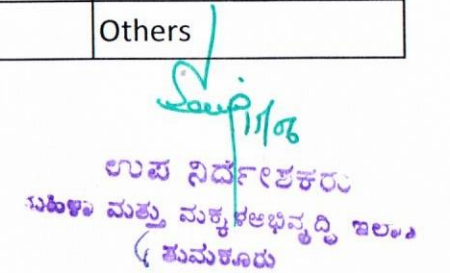 Others
11/06
ಉಪ ನಿರ್ದೇಶಕರು
ಮಹಿಳಾ ಮತ್ತು ಮಕ್ಕಳಅಭಿವೃದ್ಧಿ ಇಲಾಖೆ
ತುಮಕೂರು